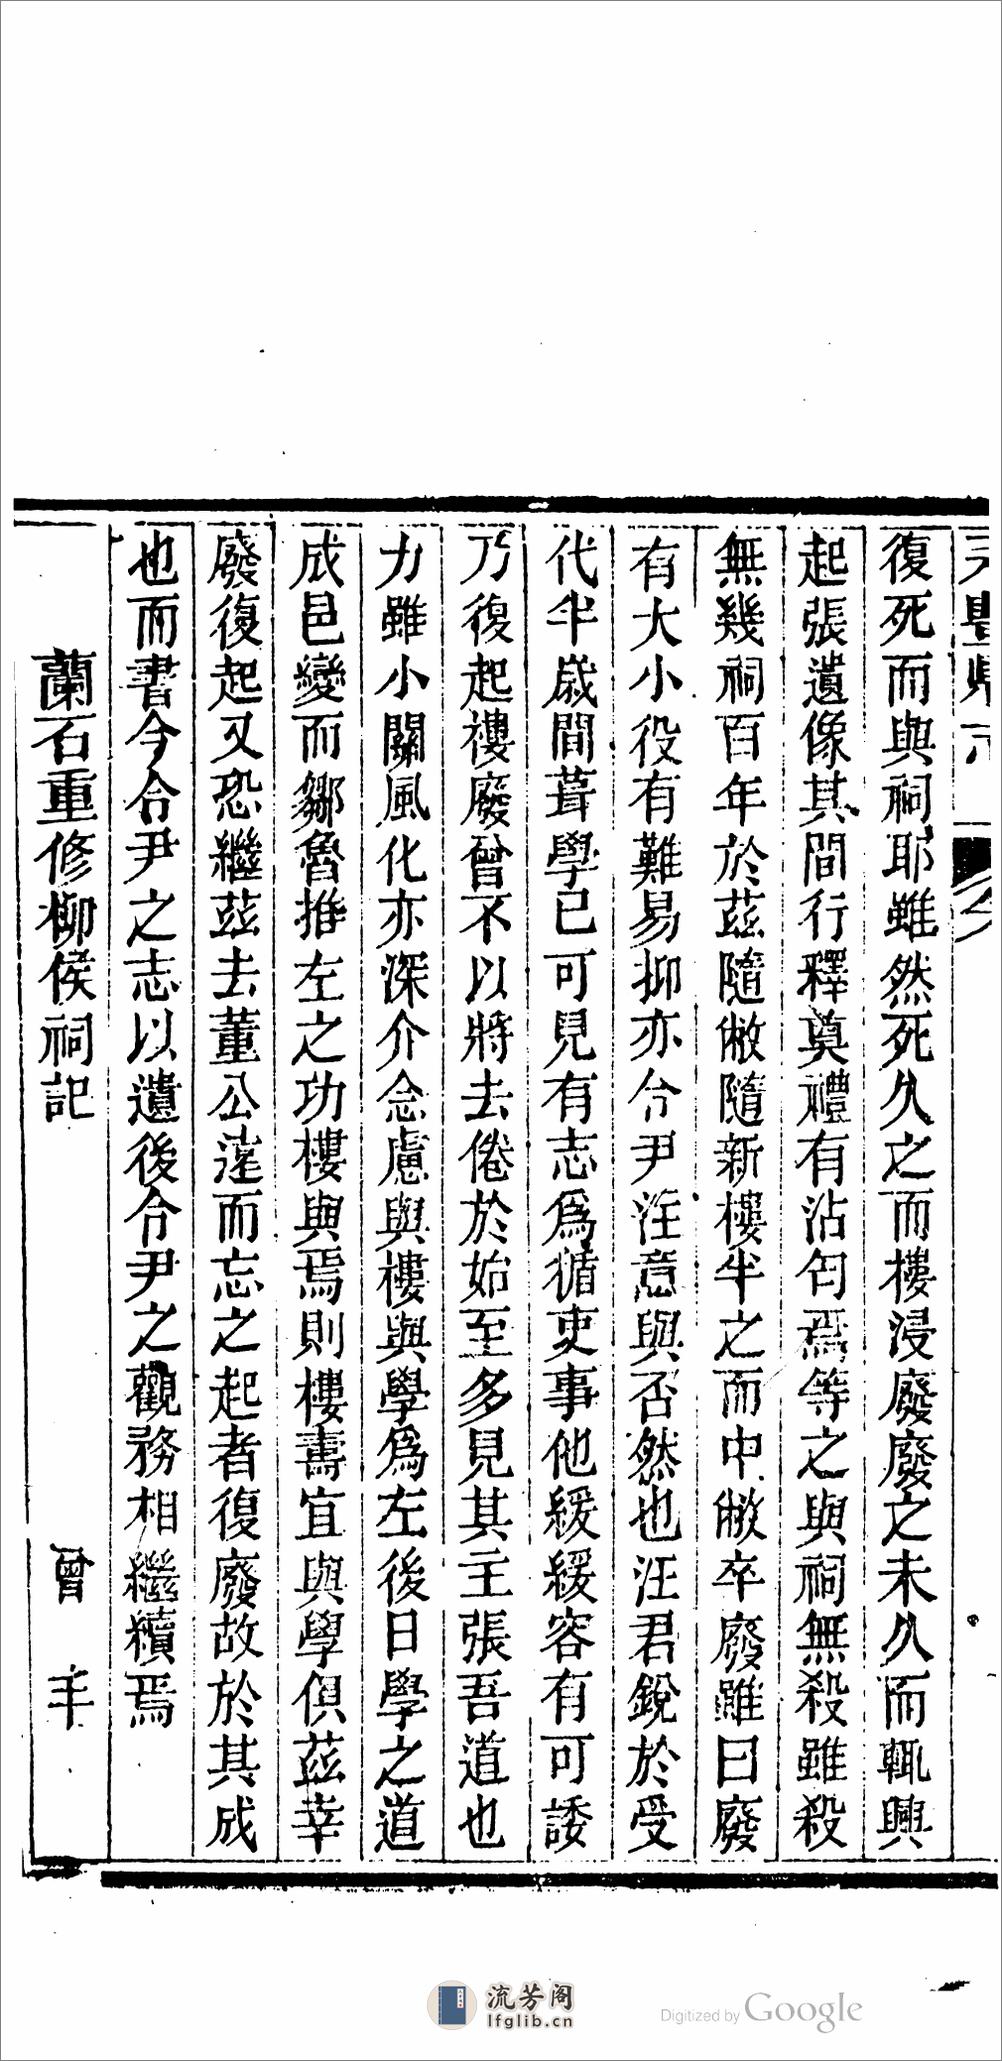 復死而與祠耶雖然死久之而樓浸廢廢之未久而輒興
起張遺像其間行釋奠禮有沾匄焉等之與祠無殺雖殺
無幾祠百年於茲隨敝隨新樓半之而中敝卒廢雖曰廢
有大小役有難易抑亦令尹注意與否然也汪君銳於受
代半歲間葺學已可見有志為循吏事他緩緩容有可諉
乃復起樓廢曾不以將去倦於始至多見其主張吾道也
力雖小關風化亦深介念慮與樓與學為左後日學之道
成邑變而鄒魯推左之功樓與焉則樓壽宜與學俱茲幸
廢復起又恐繼茲去董公溼而忘之起者復廢故於其成
也而書今令尹之志以遺後令尹之觀務相繼續焉
蘭石重修柳侯祠記
曾丰
流芳阁
lfglib.cn
Digitized by Google